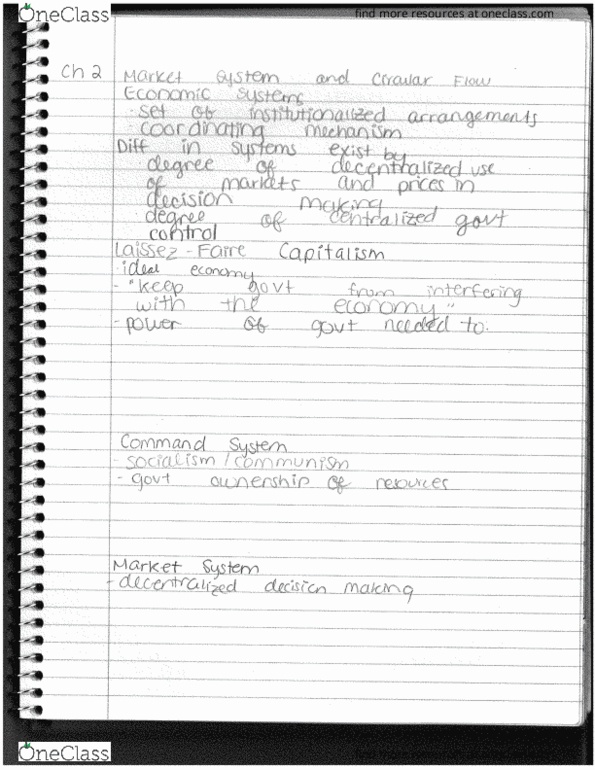 OneClass
find more resources at oneclass.com
Ch 2
Market System and Circular Flow
Economic Systems
· set of institutionalized arrangements
· coordinating mechanism
Diff in systems exist by
degree of decentralized use
of markets and prices in
decision making
degree of centralized govt
control
Laissez-Faire Capitalism
· ideal economy
- "keep govt from interfering
with the economy"
- power of govt needed to:
Command System
- socialism / communism
- govt ownership of resources
Market System
- decentralized decision making
OneClass
find more resources at oneclass.com